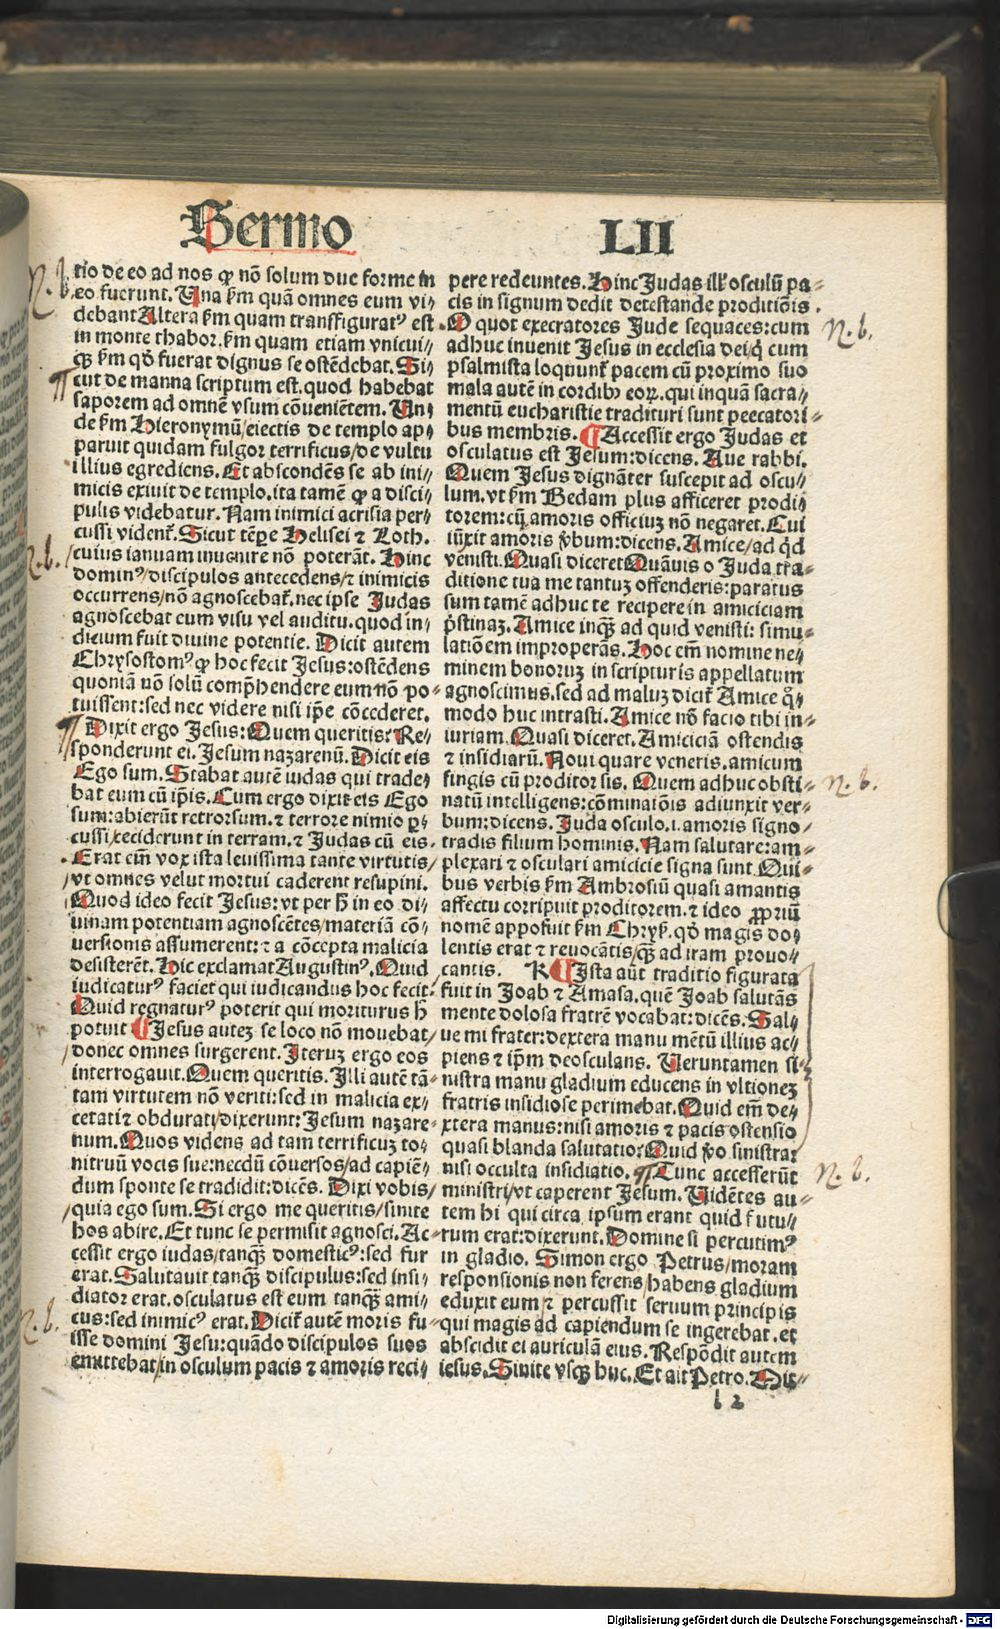 Sermo LII
tio de eo ad nos ꝙ nõ solum due forme in
eo fuerunt. Una ẜm quã omnes eum vi⸗
debant Altera ẜm quam transfigurat⁹ est
in monte thabor. ẜm quam etiam vnicui⸗
qꝫ ẜm qđ fuerat dignus se ostẽdebat. Si⸗
cut de manna scriptum est. quod habebat
saporem ad omnẽ vsum cõueniẽtem. Un⸗
de ẜm Hieronymũ/eiectis de templo ap⸗
paruit quidam fulgor terrificus/de vultu
illius egrediens. Et abscondẽs se ab ini⸗
micis exiuit de templo. ita tamẽ ꝙ a disci⸗
pulis videbatur. Nam inimici acrisia per⸗
cussi vident̃. Sicut tẽpe Helisei ⁊ Loth.
cuius ianuam inuenire nõ poterãt. Hinc
domin⁹/discipulos antecedens/⁊ inimicis
occurrens/nõ agnoscebat̃. nec ipse Judas
agnoscebat eum visu vel auditu. quod in⸗
dicium fuit diuine potentie. Dicit autem
Chrysostom⁹ ꝙ hoc fecit Jesus: ostẽdens
quoniã nõ solũ comp̃hendere eum nõ po⸗
tuissent: sed nec videre nisi ip̃e cõcederet.
Dixit ergo Jesus: Quem queritis? Re⸗
sponderunt ei. Jesum nazarenũ. Dicit eis
Ego sum. Stabat autẽ iudas qui trade⸗
bat eum cũ ip̃is. Cum ergo dixit eis Ego
sum: abierũt retrorsum. ⁊ terrore nimio ꝑ⸗
cussi/ceciderunt in terram. ⁊ Judas cũ eis.
Erat em̃ vox ista leuissima tante virtutis/
vt omnes velut mortui caderent resupini.
Quod ideo fecit Jesus: vt per h̃ in eo di⸗
uinam potentiam agnoscẽtes/materiã cõ⸗
uersionis assumerent: ⁊ a cõcepta malicia
desisterẽt. Hic exclamat Augustin⁹. Quid
iudicatur⁹ faciet qui iudicandus hoc fecit.
Quid regnatur⁹ poterit qui moriturus h̃
potuit ¶ Jesus autez se loco nõ mouebat/
donec omnes surgerent. Iteruz ergo eos
interrogauit. Quem queritis. Illi autẽ tã⸗
tam virtutem nõ veriti: sed in malicia ex⸗
cecati ⁊ obdurati/dixerunt: Jesum nazare⸗
num. Quos videns ad tam terrificuz to⸗
nitruũ vocis sue: necdũ cõuersos/ad capiẽ⸗
dum sponte se tradidit: dicẽs. Dixi vobis/
quia ego sum. Si ergo me queritis/sinite
hos abire. Et tunc se permisit agnosci. Ac⸗
cessit ergo iudas/tanqꝫ domestic⁹: sed fur
erat. Salutauit tanqꝫ discipulus: sed insi⸗
diator erat. osculatus est eum tanqꝫ ami⸗
cus: sed inimic⁹ erat. Dicit̃ autẽ moris fu⸗
isse domini Jesu: quãdo discipulos suos
emittebat/in osculum pacis ⁊ amoris reci⸗
pere redeuntes. Hinc Judas ill̃ osculũ pa⸗
cis in signum dedit detestande proditiõis.
O quot execratores Jude sequaces: cum
adhuc inuenit Jesus in ecclesia dei/q̃ cum
psalmista loquunt̃ pacem cũ proximo suo
mala autẽ in cordibꝰ eoꝝ. qui inquã sacra⸗
mentũ eucharistie tradituri sunt peccatori⸗
bus membris. ¶ Accessit ergo Judas et
osculatus est Jesum: dicens. Aue rabbi.
Quem Jesus dignãter suscepit ad oscu⸗
lum. vt ẜm Bedam plus afficeret prodi⸗
torem: cũ amoris officiuz nõ negaret. Cui
iũxit amoris ṽbum: dicens. Amice/ad q̃d
venisti. Quasi diceret Quãuis o Juda tra⸗
ditione tua me tantuz offenderis: paratus
sum tamẽ adhuc te recipere in amiciciam
p̃stinaz. Amice inqꝫ ad quid venisti: simu⸗
latiõem improperãs. Hoc em̃ nomine ne⸗
minem bonoruz in scripturis appellatum
agnoscimus. sed ad maluz dicit̃ Amice q̃⸗
modo huc intrasti. Amice nõ facio tibi in⸗
iuriam. Quasi diceret. Amiciciã ostendis
⁊ insidiarũ. Noui quare veneris. amicum
fingis cũ proditor sis. Quem adhuc obsti⸗
natũ intelligens: cõminatiõis adiunxit ver⸗
bum: dicens. Juda osculo .i. amoris signo/
tradis filium hominis. Nam salutare: am⸗
plexari ⁊ osculari amicicie signa sunt Qui⸗
bus verbis ẜm Ambrosiũ quasi amantis
affectu corripuit proditorem. ⁊ ideo ꝓpriũ
nomẽ apposuit ẜm Chryẜ. qđ magis do⸗
lentis erat ⁊ reuocãtis/qꝫ ad iram prouo⸗
cantis. K ¶ Ista aũt traditio figurata
fuit in Joab ⁊ Amasa. quẽ Joab salutãs
mente dolosa fratrẽ vocabat: dicẽs. Sal⸗
ue mi frater: dextera manu mẽtũ illius ac⸗
piens ⁊ ip̃m deosculans. Veruntamen si⸗
nistra manu gladium educens in vltionez
fratris insidiose perimebat. Quid em̃ de⸗
xtera manus: nisi amoris ⁊ pacis ostensio
quasi blanda salutatio: Quid ṽo sinistra:
nisi occulta insidiatio. Tunc accesserũt
ministri/vt caperent Jesum. Vidẽtes au⸗
tem hi qui circa ipsum erant quid futu⸗
rum erat: dixerunt. Domine si percutim⁹
in gladio. Simon ergo Petrus/moram
responsionis non ferens/habens gladium
eduxit eum/⁊ percussit seruum principis
qui magis ad capiendum se ingerebat. et
abscidit ei auriculã eius. Respõdit autem
iesus. Sinite vsqꝫ huc. Et ait Petro. Mit⸗
l 2
N.b.
N.b.
N.b.
N.b.
N.b.
N.b.
Digitalisierung gefördert durch die Deutsche Forschungsgemeinschaft - DFG